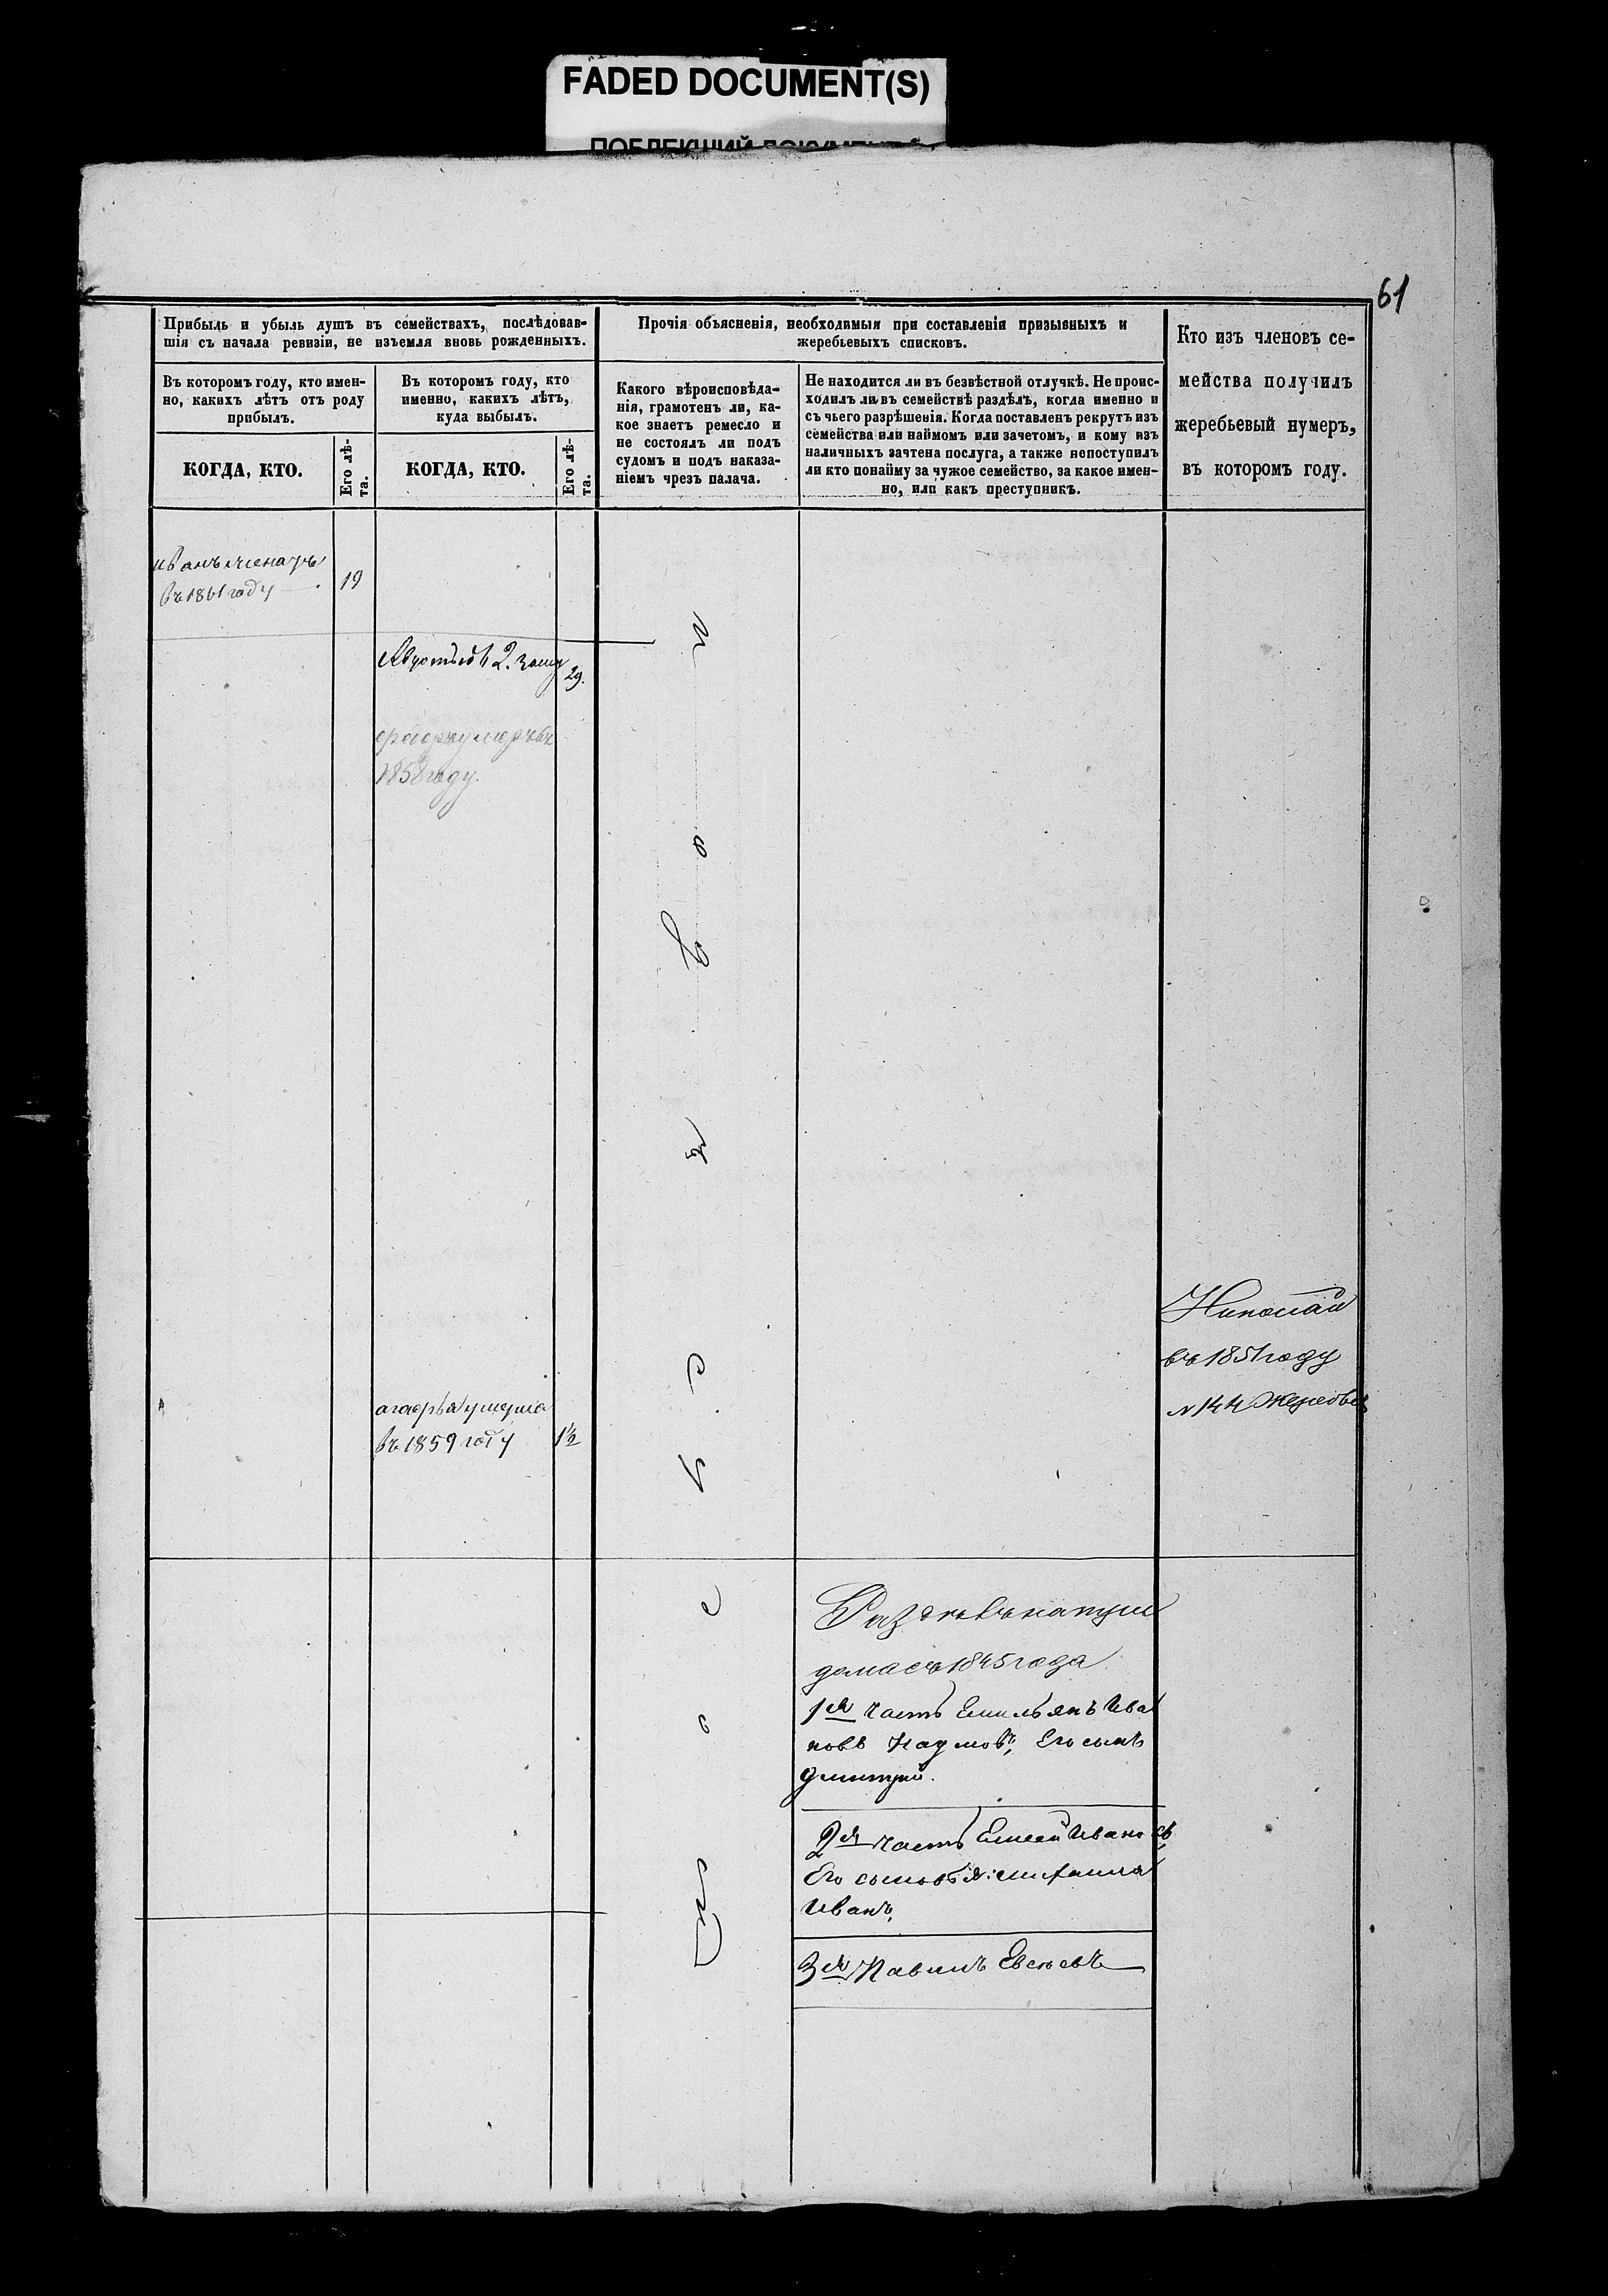 FADED DOCUMENT(S)
ПОБЛЕКШИЙ ДОКУМЕНТ
61
Прибыль и убыль душъ въ семействахъ, послѣдовав-
шія съ начала ревизіи, не изъемля вновь рожденныхъ.
Въ которомъ году, кто имен-
но, какихъ лѣтъ отъ роду
прибылъ.
КОГДА, КТО.
Его лѣ-
та.
Въ которомъ году, кто
именно, какихъ лѣтъ,
куда выбылъ.
КОГДА, КТО.
Его лѣ-
та.
Прочія объясненія, необходимыя при составленіи призывныхъ и
жеребьевыхъ списковъ.
Какого вѣроисповѣда-
нія, грамотенъ ли, ка-
кое знаетъ ремесло и
не состоялъ ли подъ
судомъ и подъ наказа-
ніемъ чрезъ палача.
Не находится ли въ безвѣстной отлучкѣ. Не проис-
ходилъ ли въ семействѣ раздѣлъ, когда именно и
съ чьего разрѣшенія. Когда поставленъ рекрутъ изъ
семейства или наймомъ или зачетомъ, и кому изъ
наличныхъ зачтена послуга, а также непоступилъ
ли кто понайму за чужое семейство, за какое имен-
но, или какъ преступникъ.
Кто изъ членовъ се-
мейства получилъ
жеребьевый нумеръ,
въ которомъ году.
иванъ женатъ
въ 1861 году 19
2. 29.
1858 году.
Николай
въ 1851 году
№ 144 жеребья
агафья умерла
въ 1859 году 1½
на три
дома съ 1845 года
1я часть Емильянъ Ива
новъ Наумовъ, Его сынъ
Дмитрий.
2я часть Елисей Ивановъ
Его сыновья: михаила
Иванъ,
3я Павилъ Евсѣевъ